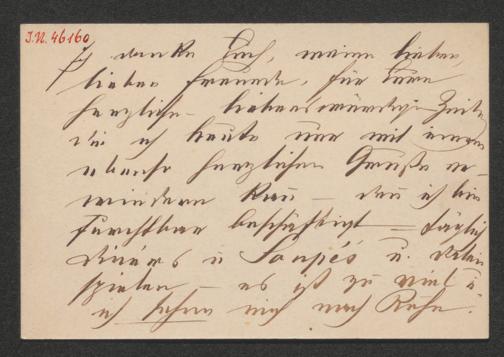 J.N. 46160
Ich danke Euch, meine lieben,
lieben Freunde, für Eure
herzlichen liebenswürdigen Zeilen
die ich heute nur mit einem
ebenso herzlichen Gruße er-
wiedern kann — denn ich bin
furchtbar beschäftigt — täglich
Diners u Soupés u.
spielen — es ist zu viel u
ich sehne mich nach Ruhe.